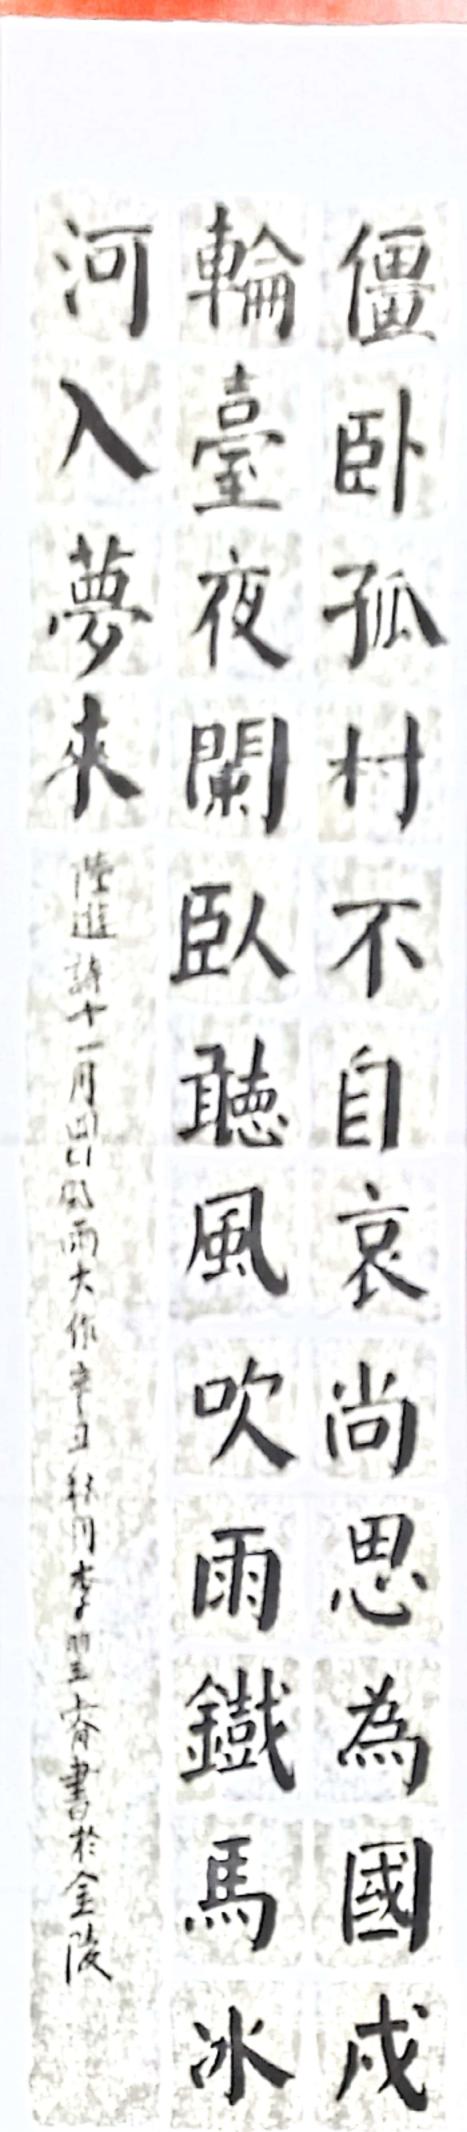 僵卧孤村不自哀尚思為國戍
輪臺夜闌臥聽風吹雨鐵馬冰
河入夢來
陸遊詩十一月四日風雨大作辛丑秋月李聖齋書於金陵